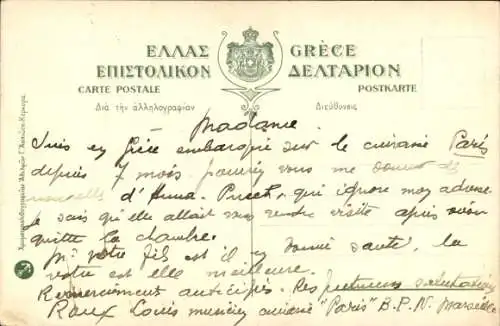 ΕΛΛΑΣ GRÈCE
ΕΠΙΣΤΟΛΙΚΟΝ ΔΕΛΤΑΡΙΟΝ
CARTE POSTALE POSTKARTE
Διὰ τὴν ἀλληλογραφίαν Διεύθυνσις
Madame
Suis en Grèce embarqué sur le cuirassé Paris
depuis 7 mois pourriez vous me donner des
nouvelles d'Anna qui ignore mon adresse
Je sais qu'elle allait vous rendre visite après avoir
quitté la chambre.
votre fils est il en bonne santé, la
votre est elle meilleure.
Remerciement anticipés. Respectueuses salutations
Roux Louis musicien cuirassé "Paris" B.P.N. Marseille